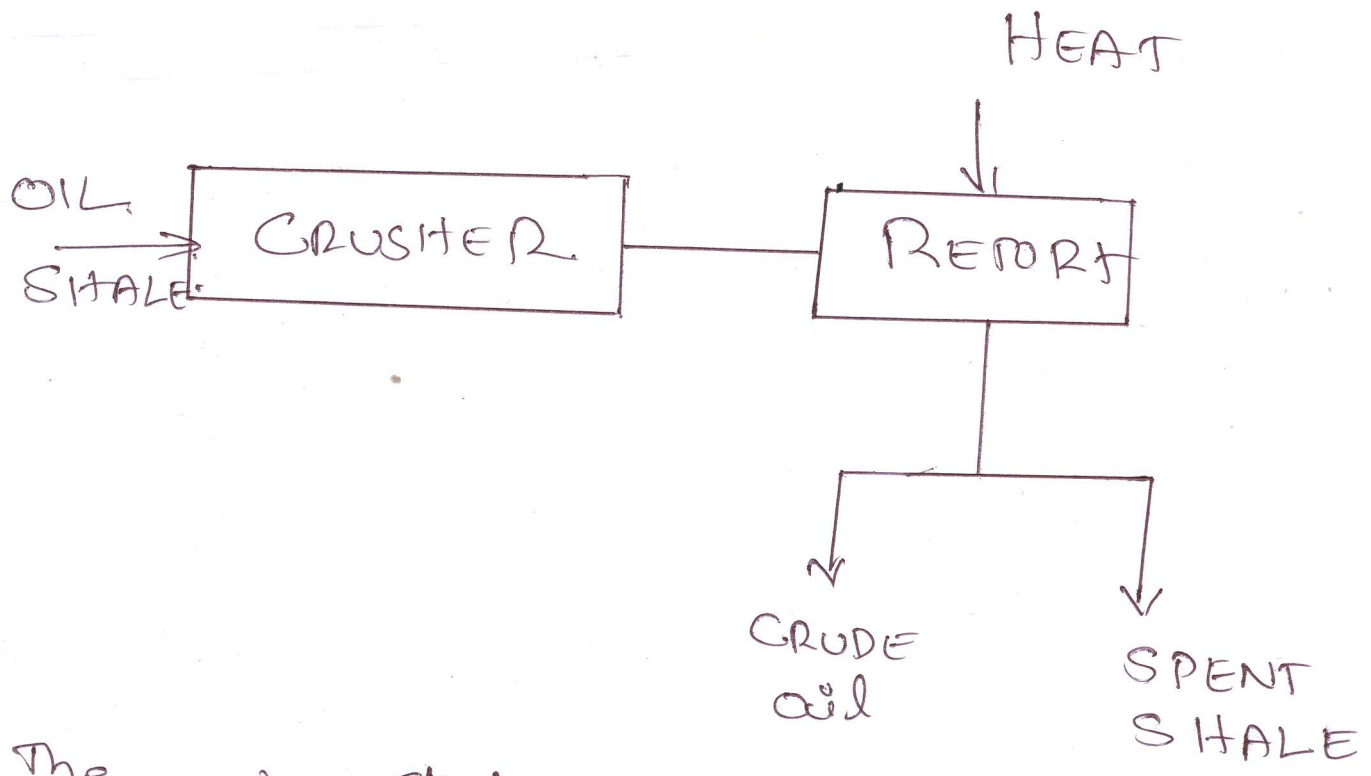 HEAT
OIL
SHALE
CRUSHER
RETORT
CRUDE
oil
SPENT
SHALE
The